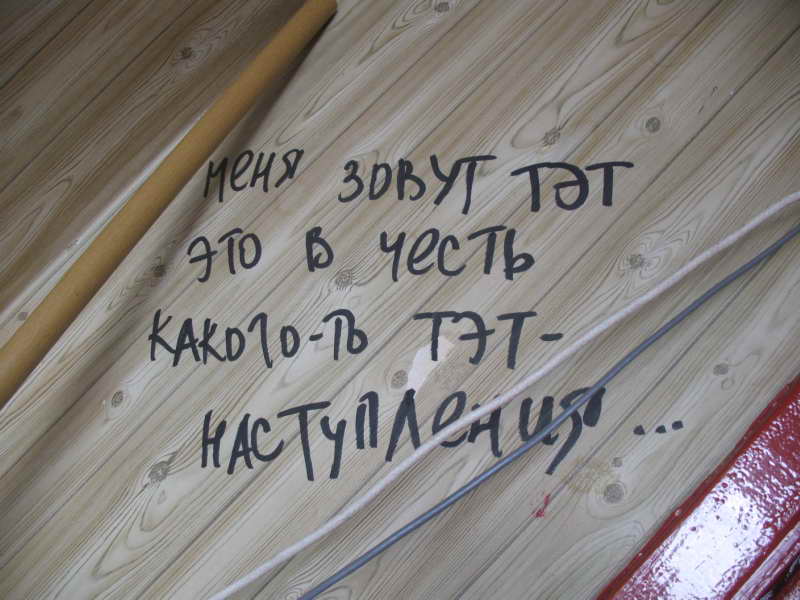 меня зовут тэт
это в честь
какого-то тэт-
наступления...